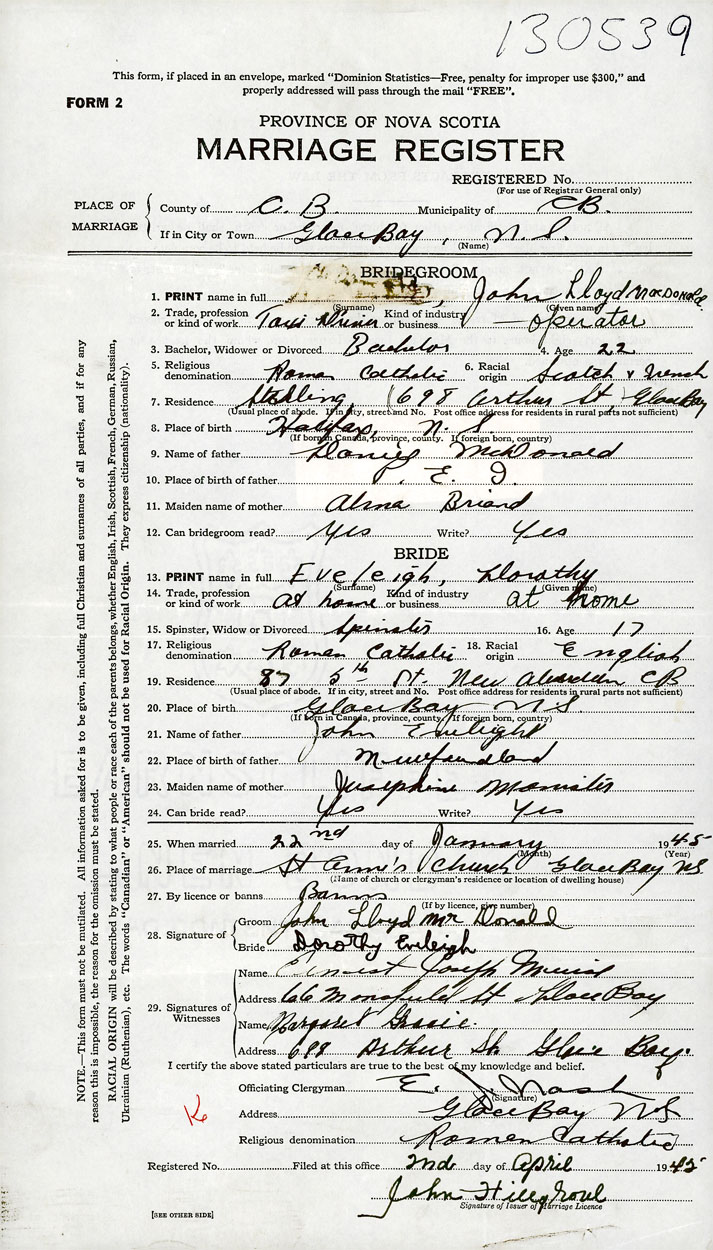 130539
This form, if placed in an envelope, marked "Dominion Statistics—Free, penalty for improper use $300," and
properly addressed will pass through the mail "FREE".
FORM 2
PROVINCE OF NOVA SCOTIA
MARRIAGE REGISTER
REGISTERED No.
(For use of Registrar General only)
PLACE OF MARRIAGE
County of C. B. Municipality of CB.
If in City or Town Glace Bay, N.S.
(Name)
BRIDEGROOM
1. PRINT name in full , John Lloyd MacDONALD.
(Surname) (Given name)
2. Trade, profession or kind of work Taxi Driver Kind of industry or business operator
3. Bachelor, Widower or Divorced Bachelor 4. Age 22
5. Religious denomination Roman Catholic 6. Racial origin Scotch & French
7. Residence Sterling (698 Arthur St Glace Bay
(Usual place of abode. If in city, street and No. Post office address for residents in rural parts not sufficient)
8. Place of birth Halifax, N.S.
(If born in Canada, province, county. If foreign born, country)
9. Name of father Daniel McDonald
10. Place of birth of father P. E. I.
11. Maiden name of mother Alma Briand
12. Can bridegroom read? Yes Write? Yes
BRIDE
13. PRINT name in full Eveleigh, Dorothy
(Surname) (Given name)
14. Trade, profession or kind of work at home Kind of industry or business at home
15. Spinster, Widow or Divorced Spinster 16. Age 17
17. Religious denomination Roman Catholic 18. Racial origin English
19. Residence 87 5th St. New Aberdeen CB
(Usual place of abode. If in city, street and No. Post office address for residents in rural parts not sufficient)
20. Place of birth Glace Bay N.S.
(If born in Canada, province, county. If foreign born, country)
21. Name of father John Eveleigh
22. Place of birth of father Newfoundland
23. Maiden name of mother Josephine
24. Can bride read? Yes Write? Yes
25. When married 22nd day of January 1945
(Month) (Year)
26. Place of marriage St Anne's Church Glace Bay NS
(Name of church or clergyman's residence or location of dwelling house)
27. By licence or banns Banns
(If by licence, give number)
28. Signature of
Groom John Lloyd McDonald
Bride Dorothy Eveleigh
29. Signatures of Witnesses
Name Ernest Joseph
Address 66 St Glace Bay
Name Margaret Gracie.
Address 698 Arthur St. Glace Bay.
I certify the above stated particulars are true to the best of my knowledge and belief.
Officiating Clergyman E. J. Nash
(Signature)
Address Glace Bay N.S
Religious denomination Roman Catholic
Registered No. Filed at this office 2nd day of April 1945
John Hillgrove
Signature of Issuer of Marriage Licence
[SEE OTHER SIDE]
NOTE.—This form must not be mutilated. All information asked for is to be given, including full Christian and surnames of all parties, and if for any
reason this is impossible, the reason for the omission must be stated.
RACIAL ORIGIN will be described by stating to what people or race each of the parents belongs, whether English, Irish, Scottish, French, German, Russian,
Ukrainian (Ruthenian), etc. The words "Canadian" or "American" should not be used for Racial Origin. They express citizenship (nationality).